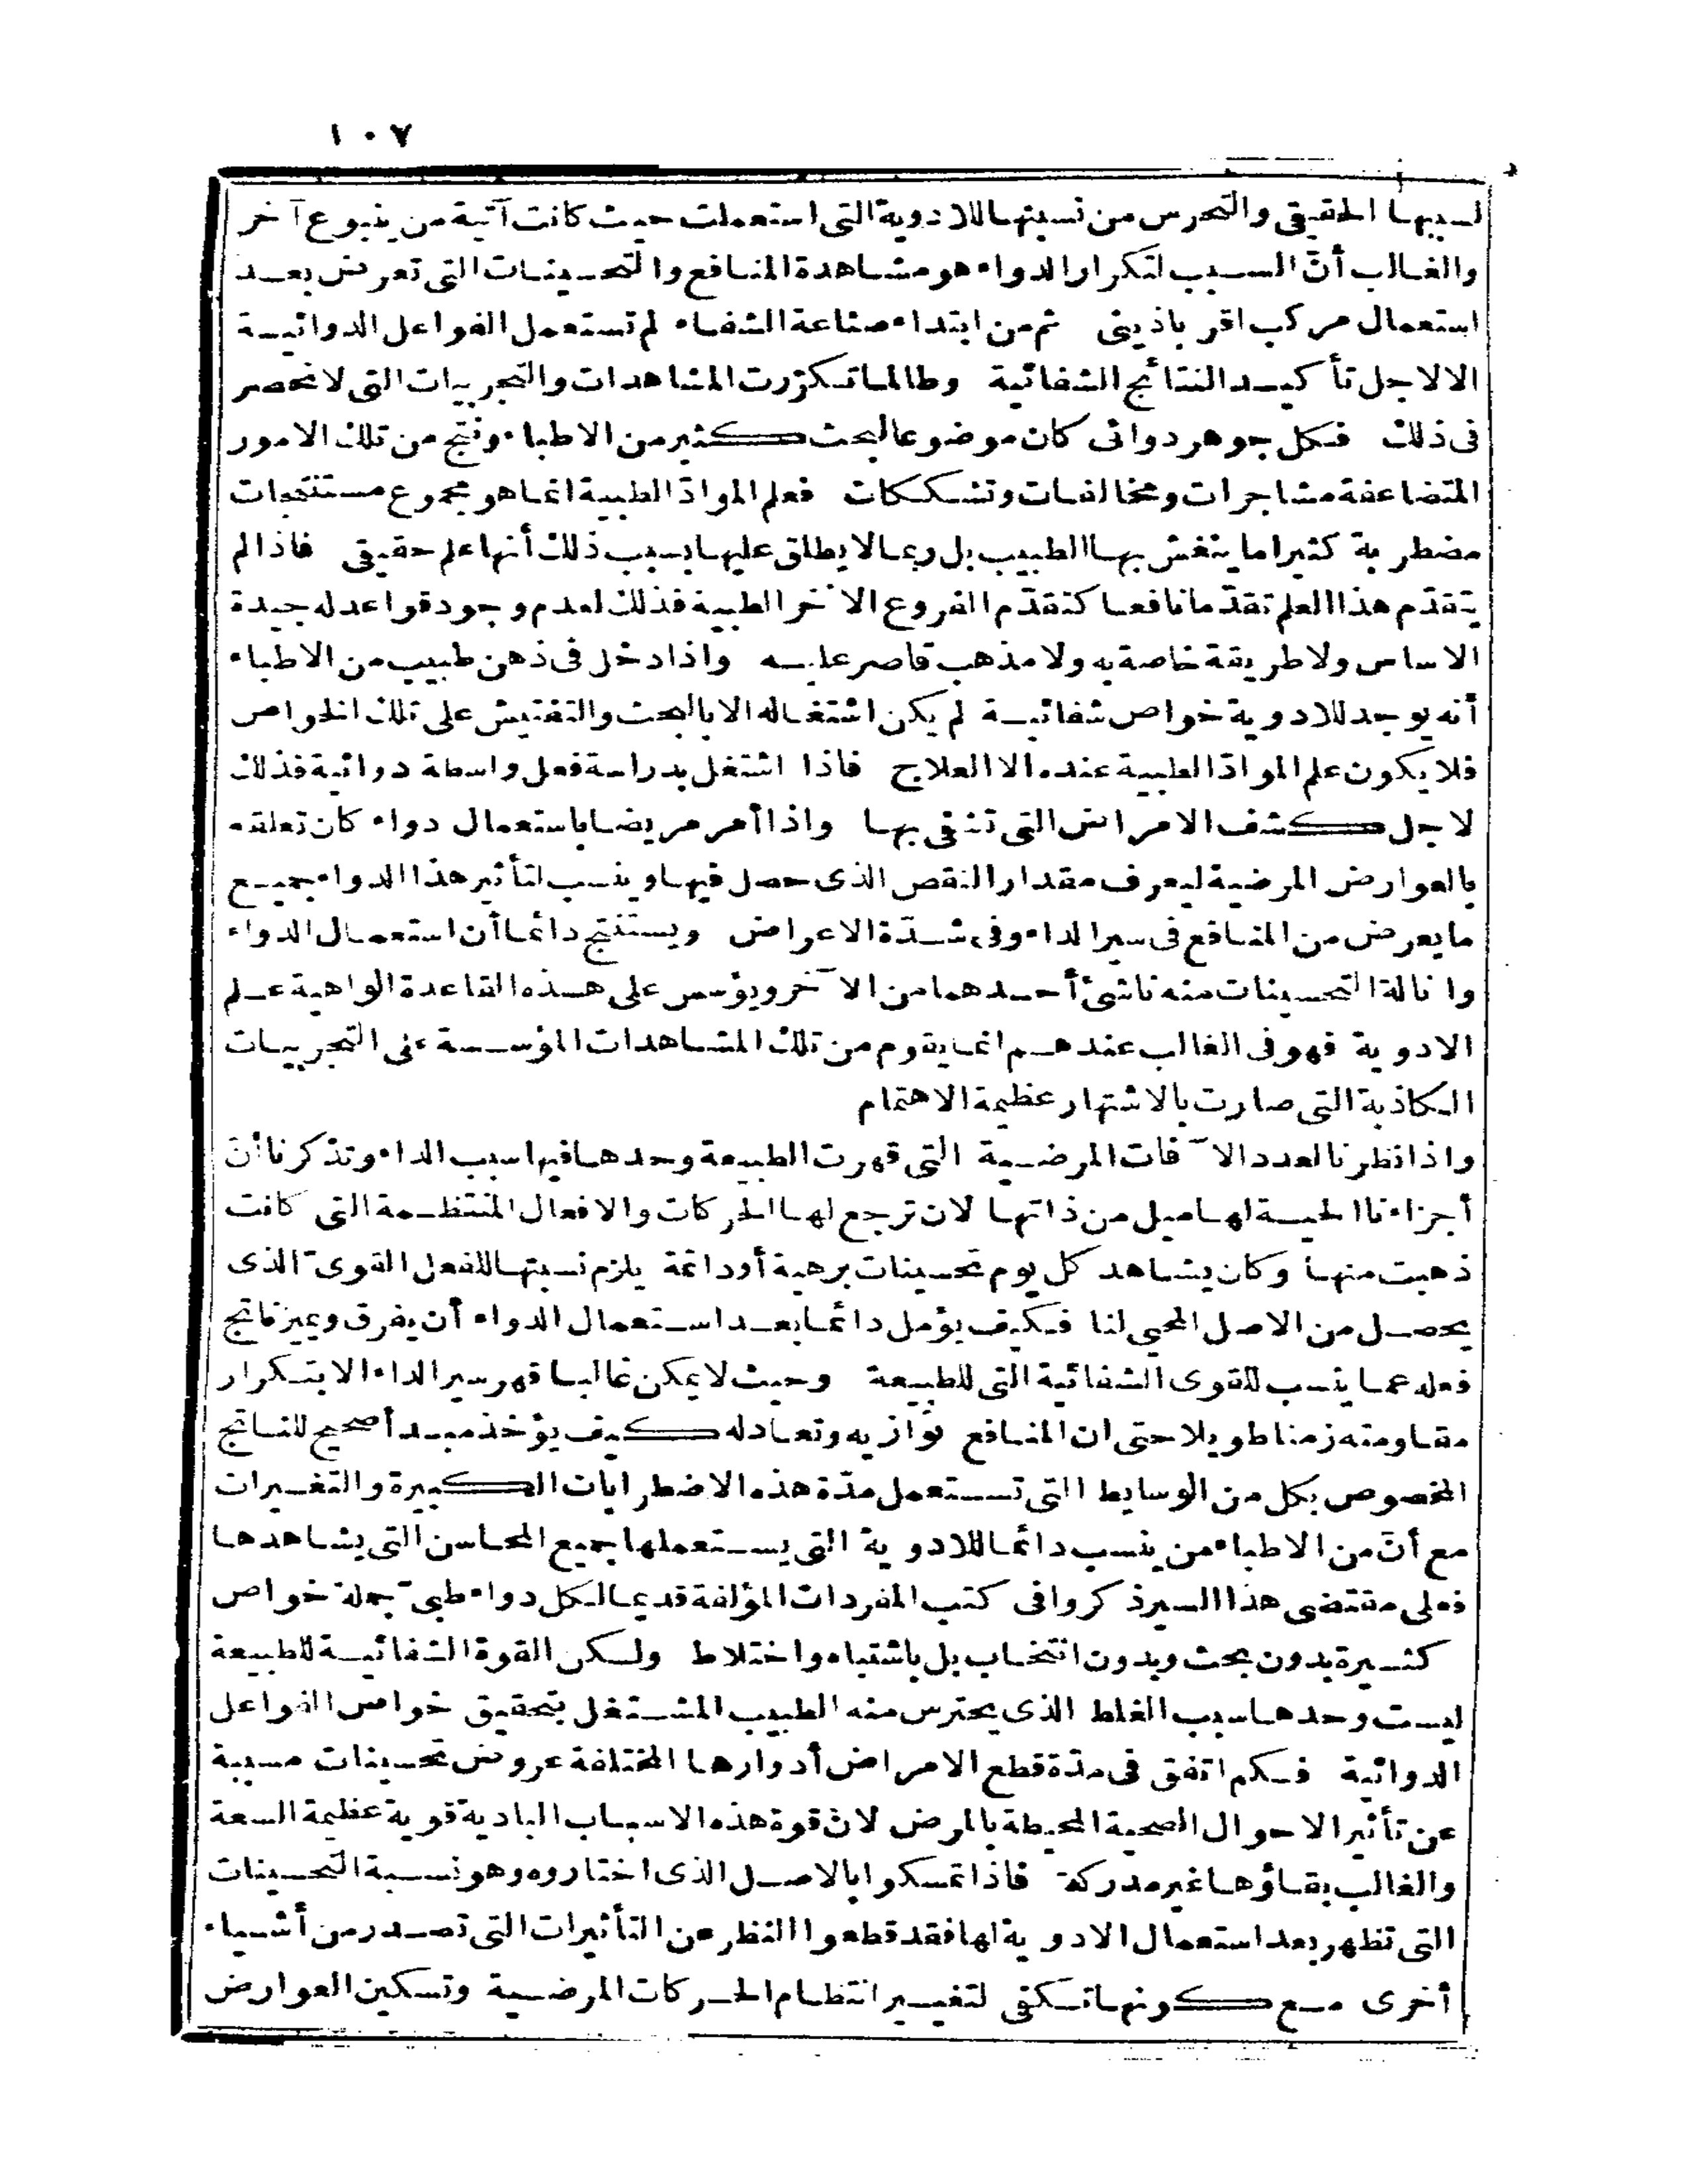 ١٠٧
لسببها الحقيقى والتحرس من نسبتها للادوية التى استعملت حيث كانت آتية من ينبوع آخر
والغالب أنّ السبب لتكرار الدواء هو مشاهدة المنافع والتحسينات التى تعرض بعد
استعمال مركب اقرباذينى ثم من ابتداء صناعة الشفاء لم تستعمل الفواعل الدوائية
الا لاجل تأكيد النتائج الشفائية وطالما تكرّرت المشاهدات والتجربيات التى لا تحصر
فى ذلك فكل جوهر دوائى كان موضوعا لبحث كثير من الاطباء ونتج من تلك الامور
المتضاعفة مشاجرات ومخالفات وتشككات فعلم الموادّ الطبية انما هو مجموع مستنتجات
مضطربة كثيرا ما ينغش بها الطبيب بل ربما لا يطلق عليها بسبب ذلك أنها علم حقيقى فاذا لم
يتقدّم هذا العلم تقدّما نافعا كتقدّم الفروع الاخر الطبية فذلك لعدم وجود قواعد له جيدة
الاساس ولا طريقة خاصة به ولا مذهب قاصر عليه واذا دخل فى ذهن طبيب من الاطباء
أنه يوجد للادوية خواص شفائية لم يكن اشتغاله الا بالبحث والتفتيش على تلك الخواص
فلا يكون علم الموادّ الطبية عنده الا العلاج فاذا اشتغل بدراسة فعل واسطة دوائية فذلك
لاجل كشف الامراض التى تنقى بها واذا أمر مريضا باستعمال دواء كان تعلقه
بالعوارض المرضية ليعرف مقدار النقص الذى حصل فيها وينسب لتأثير هذا الدواء جميع
ما يعرض من المنافع فى سير الداء وفى شدّة الاعراض ويستنتج دائما أن استعمال الدواء
وانالة التحسينات منه ناشئ أحدهما من الآخر ويؤسس على هذه القاعدة الواهية علم
الادوية فهو فى الغالب عندهم انما يقوم من تلك المشاهدات المؤسسة على التجربيات
الكاذبة التى صارت بالاشتهار عظيمة الاهتمام
واذا نظرنا لعدد الآفات المرضية التى قهرت الطبيعة وحدها فيها سبب الداء وتذكرنا أنّ
أجزاءنا الحية لها ميل من ذاتها لان ترجع لها الحركات والافعال المنتظمة التى كانت
ذهبت منها وكان يشاهد كل يوم تحسينات برهية أو دائمة يلزم نسبتها للفعل القوىّ الذى
يحصل من الاصل المحيى لنا فكيف يؤمل دائما بعد استعمال الدواء أن يفرق ويميز ناتج
فعله عما ينسب للقوى الشفائية التى للطبيعة وحيث لا يمكن غالبا قهر سير الداء الا بتكرار
مقاومته زمنا طويلا حتى ان المنافع توازيه وتعادله كيف يؤخذ مبدأ صحيح للناتج
المخصوص بكل من الوسايط التى تستعمل مدّة هذه الاضطرابات الكبيرة والتغيرات
مع أنّ من الاطباء من ينسب دائما للادوية التى يستعملها جميع المحاسن التى يشاهدها
فعلى مقتضى هذا السير ذكروا فى كتب المفردات المؤلفة قديما لكل دواء طبىّ جملة خواص
كثيرة بدون بحث وبدون انتخاب بل باشتباه واختلاط ولكن القوة الشفائية للطبيعة
ليست وحدها سبب الغلط الذى يحترس منه الطبيب المشتغل بتحقيق خواص الفواعل
الدوائية فكم اتفق فى مدّة قطع الامراض أدوارها المختلفة عروض تحسينات مسببة
عن تأثير الاحوال الصحية المحيطة بالمرض لانّ قوة هذه الاسباب البادية قوية عظيمة السعة
والغالب بقاؤها غير مدركة فاذا تمسكوا بالاصل الذى اختاروه وهو نسبة التحسينات
التى تظهر بعد استعمال الادوية لها فقد قطعوا النظر عن التأثيرات التى تصدر من أشياء
أخرى مع كونها تكفى لتغيير انتظام الحركات المرضية وتسكين العوارض